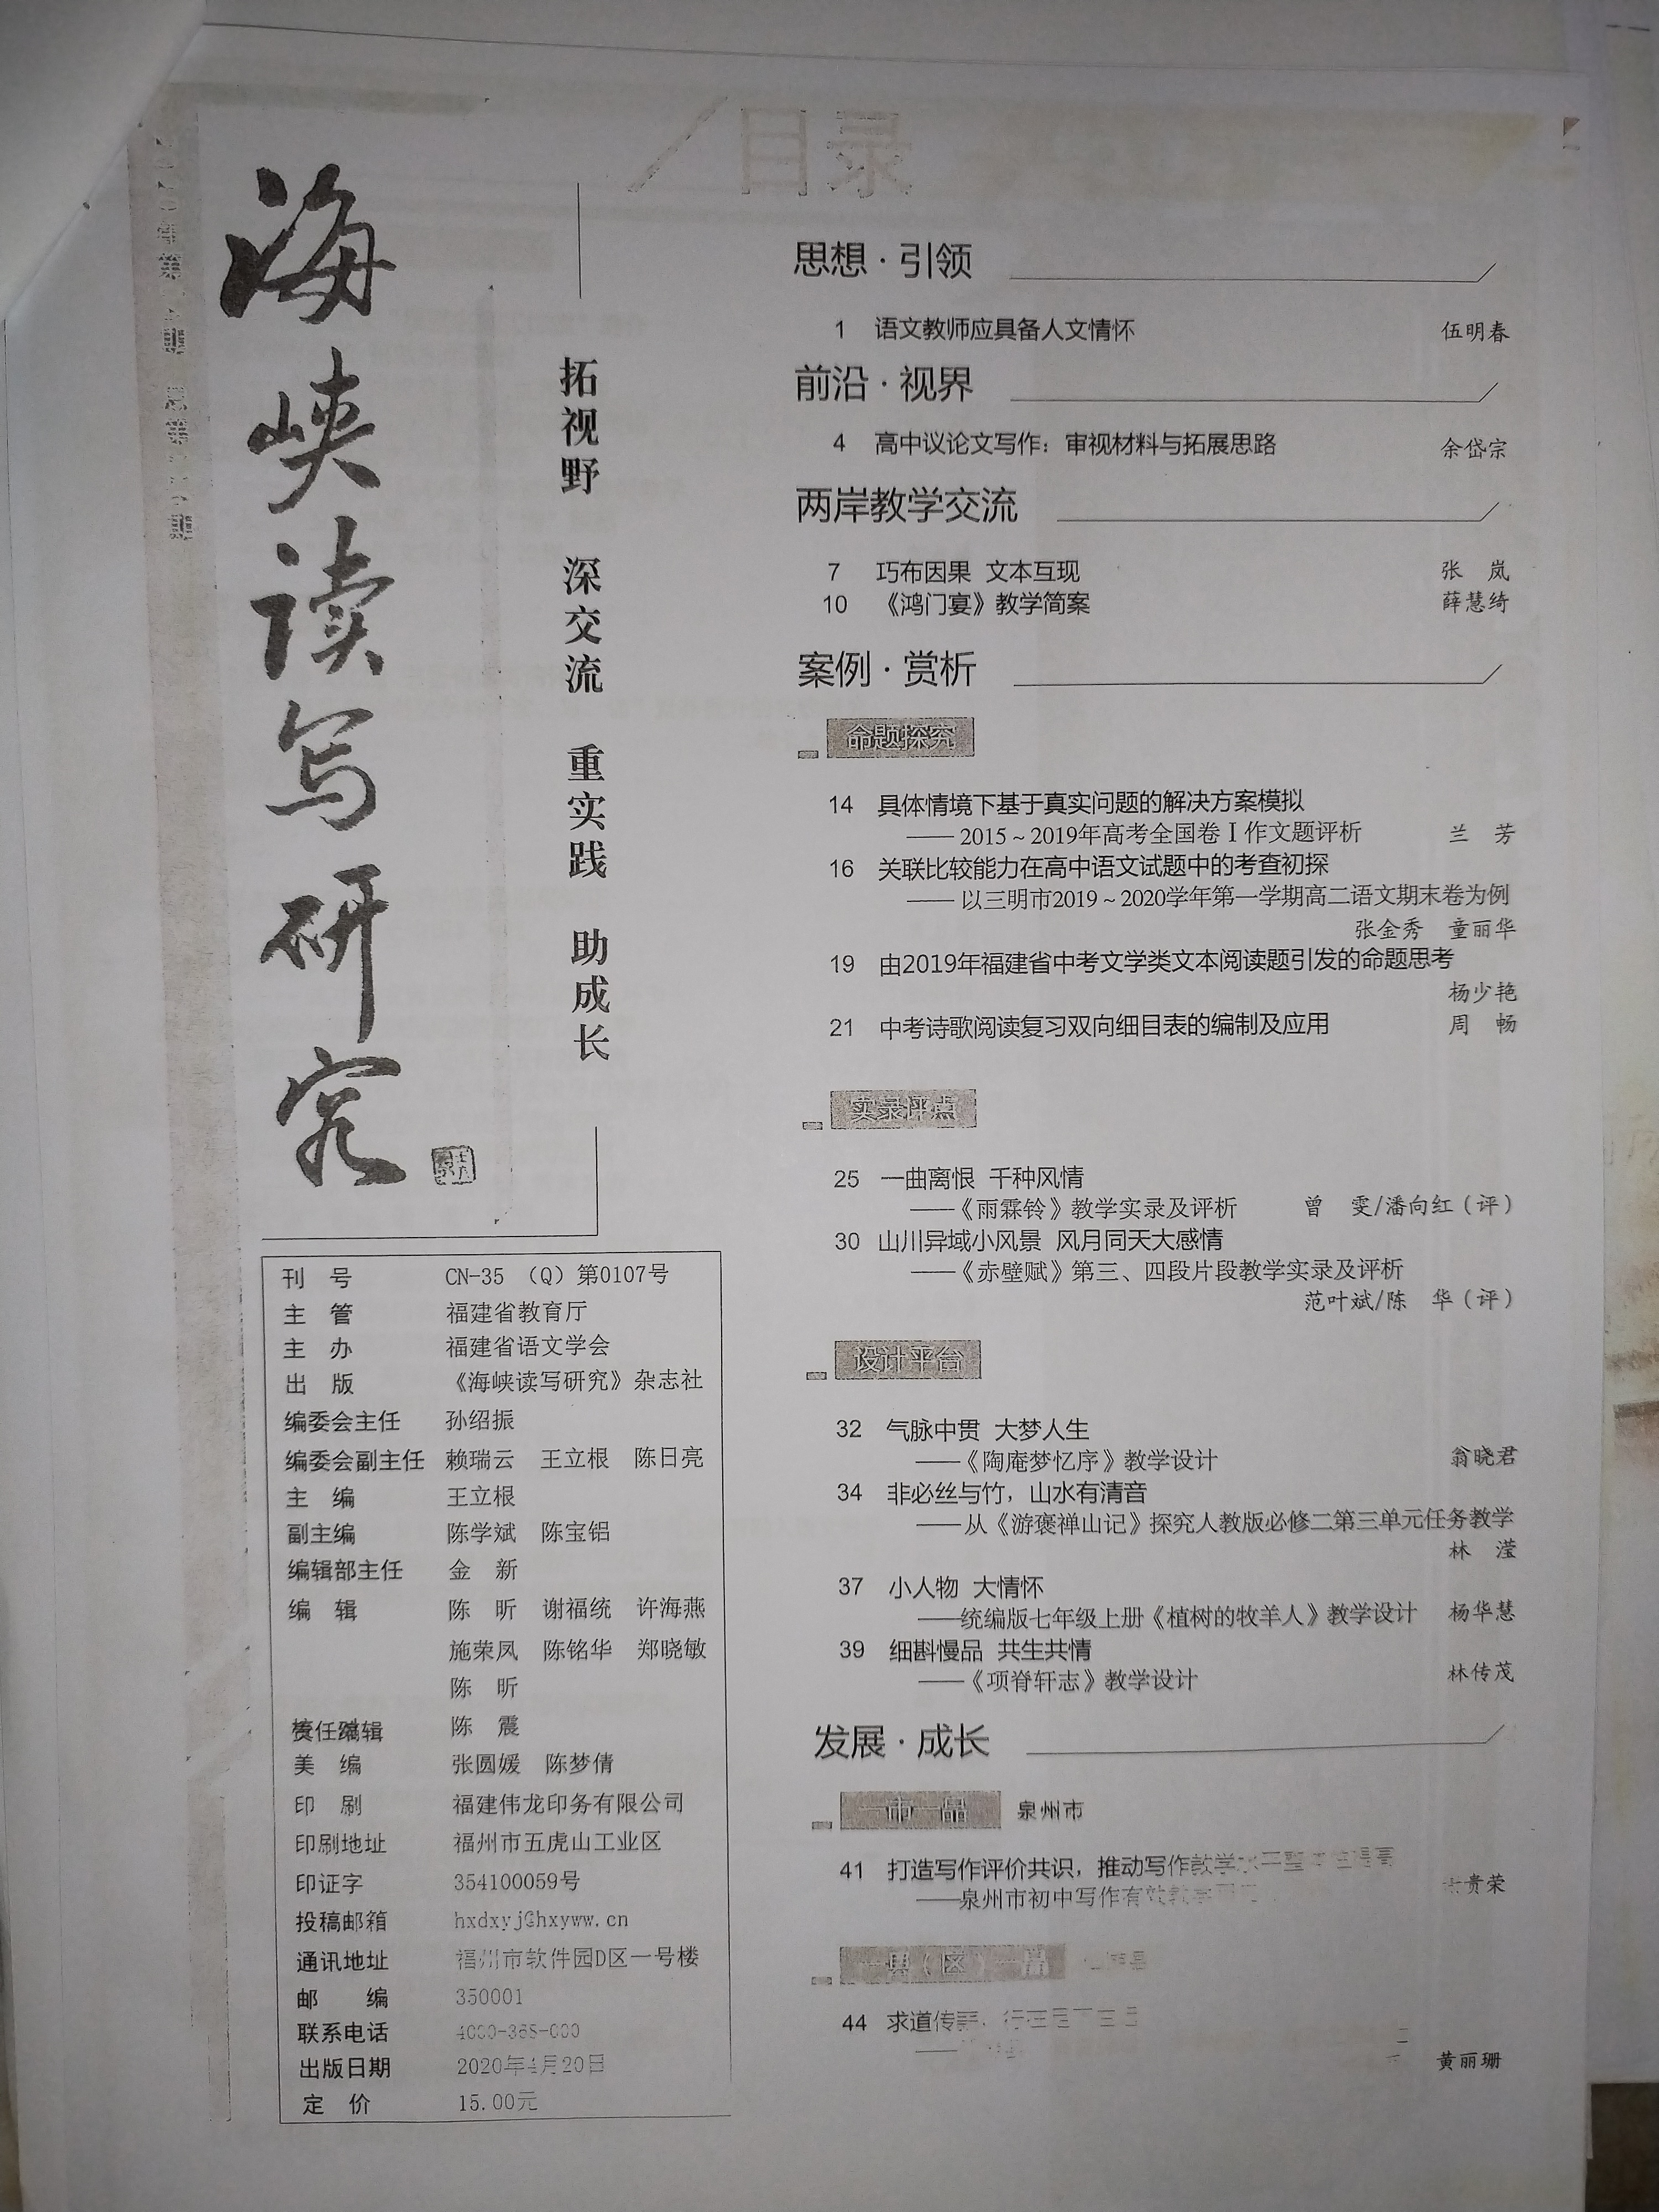 目录
海峡读写研究
拓视野 深交流 重实践 助成长
刊 号 CN-35 （Q）第0107号
主 管 福建省教育厅
主 办 福建省语文学会
出 版 《海峡读写研究》杂志社
编委会主任 孙绍振
编委会副主任 赖瑞云 王立根 陈日亮
主 编 王立根
副主编 陈学斌 陈宝铝
编辑部主任 金 新
编 辑 陈 昕 谢福统 许海燕
施荣凤 陈铭华 郑晓敏
陈 昕
责任编辑 陈 震
美 编 张圆媛 陈梦倩
印 刷 福建伟龙印务有限公司
印刷地址 福州市五虎山工业区
印证字 354100059号
投稿邮箱 hxdxyj@hxyww.cn
通讯地址 福州市软件园D区一号楼
邮 编 350001
联系电话
出版日期 2020年4月20日
定 价 15.00元
思想·引领
1 语文教师应具备人文情怀 伍明春
前沿·视界
4 高中议论文写作：审视材料与拓展思路 余岱宗
两岸教学交流
7 巧布因果 文本互现 张 岚
10 《鸿门宴》教学简案 薛慧绮
案例·赏析
命题探究
14 具体情境下基于真实问题的解决方案模拟
——2015~2019年高考全国卷Ⅰ作文题评析 兰 芳
16 关联比较能力在高中语文试题中的考查初探
——以三明市2019~2020学年第一学期高二语文期末卷为例
张金秀 童丽华
19 由2019年福建省中考文学类文本阅读题引发的命题思考
杨少艳
21 中考诗歌阅读复习双向细目表的编制及应用 周 畅
实录评点
25 一曲离恨 千种风情
——《雨霖铃》教学实录及评析 曾 雯/潘向红（评）
30 山川异域小风景 风月同天大感情
——《赤壁赋》第三、四段片段教学实录及评析
范叶斌/陈 华（评）
设计平台
32 气脉中贯 大梦人生
——《陶庵梦忆序》教学设计 翁晓君
34 非必丝与竹，山水有清音
——从《游褒禅山记》探究人教版必修二第三单元任务教学
林 滢
37 小人物 大情怀
——统编版七年级上册《植树的牧羊人》教学设计 杨华慧
39 细斟慢品 共生共情
——《项脊轩志》教学设计 林传茂
发展·成长
一市一品 泉州市
41 打造写作评价共识，推动写作教学水平
——泉州市初中写作有效教学 贵荣
一县（区）一品
44 求道传
黄丽珊